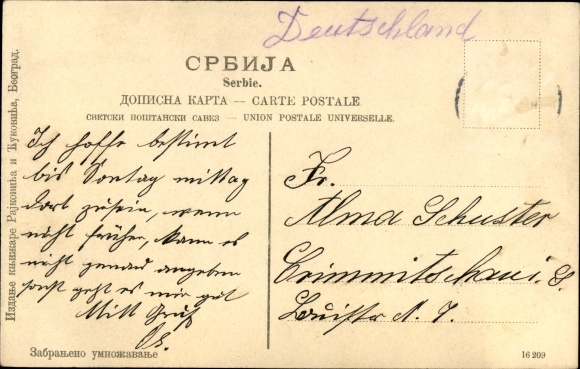 Deutschland
СРБИЈА
Serbie.
ДОПИСНА КАРТА — CARTE POSTALE
СВЕТСКИ ПОШТАНСКИ САВЕЗ — UNION POSTALE UNIVERSELLE.
Издање књижаре Рајковића и Ћуковића, Београд.
Ich hoffe bestimt
bis Sontag mittag
dort zu sein, wenn
nicht früher, kann es
nicht genau angeben
sonst geht es mir gut
Mitt Gruß
Fr.
Alma Schuster
Crimmitschau i. S.
N. 7.
Забрањено умножавање
16 209